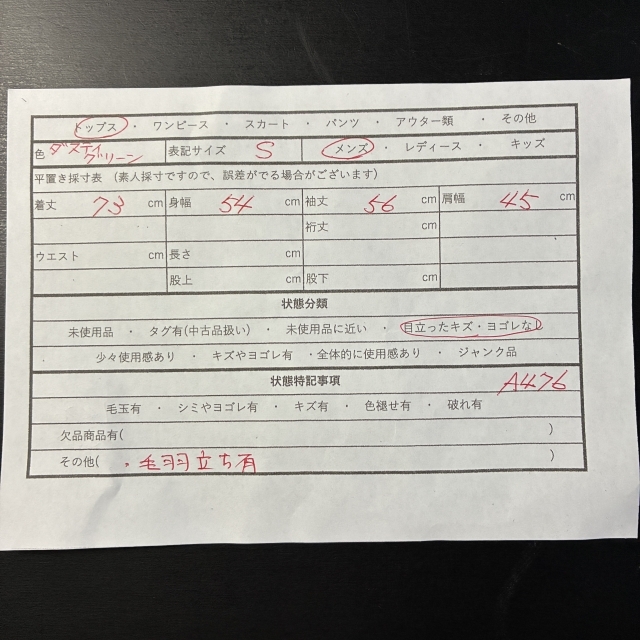 トップス ・ ワンピース ・ スカート ・ パンツ ・ アウター類 ・ その他
色 ダスティグリーン 表記サイズ S メンズ ・ レディース ・ キッズ
平置き採寸表 (素人採寸ですので、誤差がでる場合がございます)
着丈 73 cm 身幅 54 cm 袖丈 56 cm 肩幅 45 cm
裄丈 cm
ウエスト cm 長さ cm
股上 cm 股下 cm
状態分類
未使用品 ・ タグ有(中古品扱い) ・ 未使用品に近い ・ 目立ったキズ・ヨゴレなし
少々使用感あり ・ キズやヨゴレ有 ・全体的に使用感あり ・ ジャンク品
状態特記事項 A476
毛玉有 ・ シミやヨゴレ有 ・ キズ有 ・ 色褪せ有 ・ 破れ有
欠品商品有( )
その他( ・毛羽立ち有 )